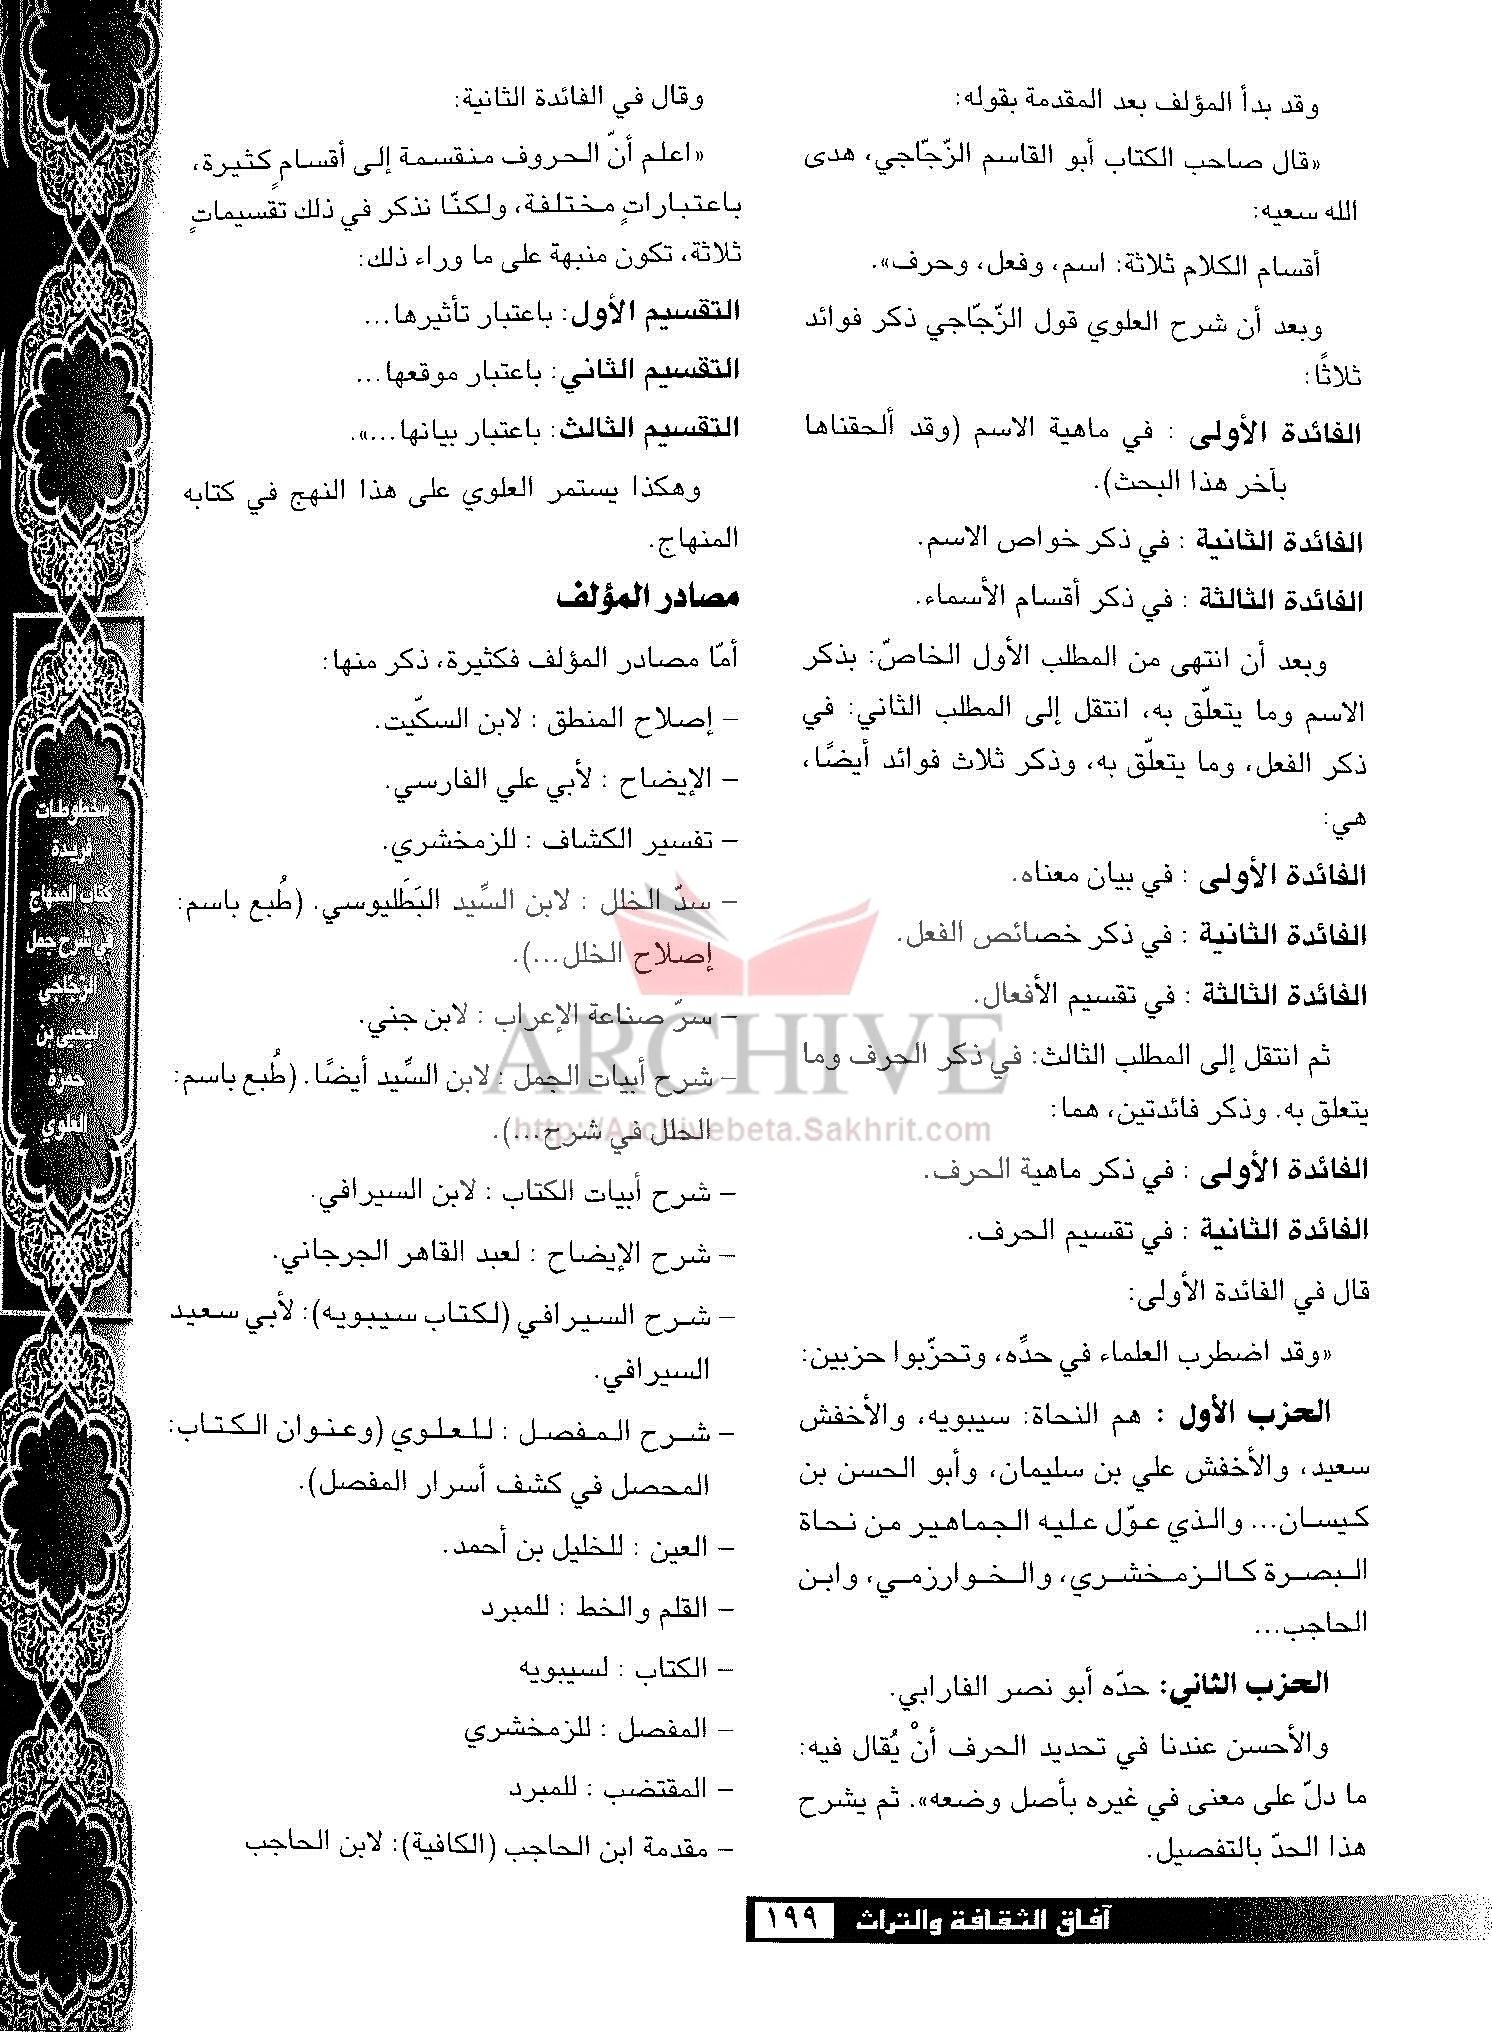 وقد بدأ المؤلف بعد المقدمة بقوله:
«قال صاحب الكتاب أبو القاسم الزّجّاجي، هدى
الله سعيه:
أقسام الكلام ثلاثة: اسم، وفعل، وحرف».
وبعد أن شرح العلوي قول الزّجّاجي ذكر فوائد
ثلاثًا:
الفائدة الأولى : في ماهية الاسم (وقد ألحقناها
بآخر هذا البحث).
الفائدة الثانية : في ذكر خواص الاسم.
الفائدة الثالثة : في ذكر أقسام الأسماء.
وبعد أن انتهى من المطلب الأول الخاصّ: بذكر
الاسم وما يتعلّق به، انتقل إلى المطلب الثاني: في
ذكر الفعل، وما يتعلّق به، وذكر ثلاث فوائد أيضًا،
هي:
الفائدة الأولى : في بيان معناه.
الفائدة الثانية : في ذكر خصائص الفعل.
الفائدة الثالثة : في تقسيم الأفعال.
ثم انتقل إلى المطلب الثالث: في ذكر الحرف وما
يتعلق به. وذكر فائدتين، هما:
الفائدة الأولى : في ذكر ماهية الحرف.
الفائدة الثانية : في تقسيم الحرف.
قال في الفائدة الأولى:
«وقد اضطرب العلماء في حدِّه، وتحزّبوا حزبين:
الحزب الأول : هم النحاة: سيبويه، والأخفش
سعيد، والأخفش علي بن سليمان، وأبو الحسن بن
كيسان... والذي عوّل عليه الجماهير من نحاة
البصرة كالزمخشري، والخوارزمي، وابن
الحاجب...
الحزب الثاني: حدّه أبو نصر الفارابي.
والأحسن عندنا في تحديد الحرف أنْ يُقال فيه:
ما دلّ على معنى في غيره بأصل وضعه». ثم يشرح
هذا الحدّ بالتفصيل.
وقال في الفائدة الثانية:
«اعلم أنّ الحروف منقسمة إلى أقسامٍ كثيرة،
باعتباراتٍ مختلفة، ولكنّا نذكر في ذلك تقسيماتٍ
ثلاثة، تكون منبهة على ما وراء ذلك:
التقسيم الأول: باعتبار تأثيرها...
التقسيم الثاني: باعتبار موقعها...
التقسيم الثالث: باعتبار بيانها...».
وهكذا يستمر العلوي على هذا النهج في كتابه
المنهاج.
مصادر المؤلف
أمّا مصادر المؤلف فكثيرة، ذكر منها:
– إصلاح المنطق : لابن السكّيت.
– الإيضاح : لأبي علي الفارسي.
– تفسير الكشاف : للزمخشري.
– سدّ الخلل : لابن السِّيد البَطَليوسي. (طُبع باسم:
إصلاح الخلل...).
– سرّ صناعة الإعراب : لابن جني.
– شرح أبيات الجمل : لابن السِّيد أيضًا. (طُبع باسم:
الحلل في شرح...).
– شرح أبيات الكتاب : لابن السيرافي.
– شرح الإيضاح : لعبد القاهر الجرجاني.
– شرح السيرافي (لكتاب سيبويه): لأبي سعيد
السيرافي.
– شرح المفصل : للعلوي (وعنوان الكتاب:
المحصل في كشف أسرار المفصل).
– العين : للخليل بن أحمد.
– القلم والخط : للمبرد
– الكتاب : لسيبويه
– المفصل : للزمخشري
– المقتضب : للمبرد
– مقدمة ابن الحاجب (الكافية): لابن الحاجب
مخطوطات
فريدة
كتاب المنهاج
في شرح جمل
الزجاجي
ليحيى بن
حمزة
العلوي
ARCHIVE
http://Archivebeta.Sakhrit.com
آفاق الثقافة والتراث ١٩٩